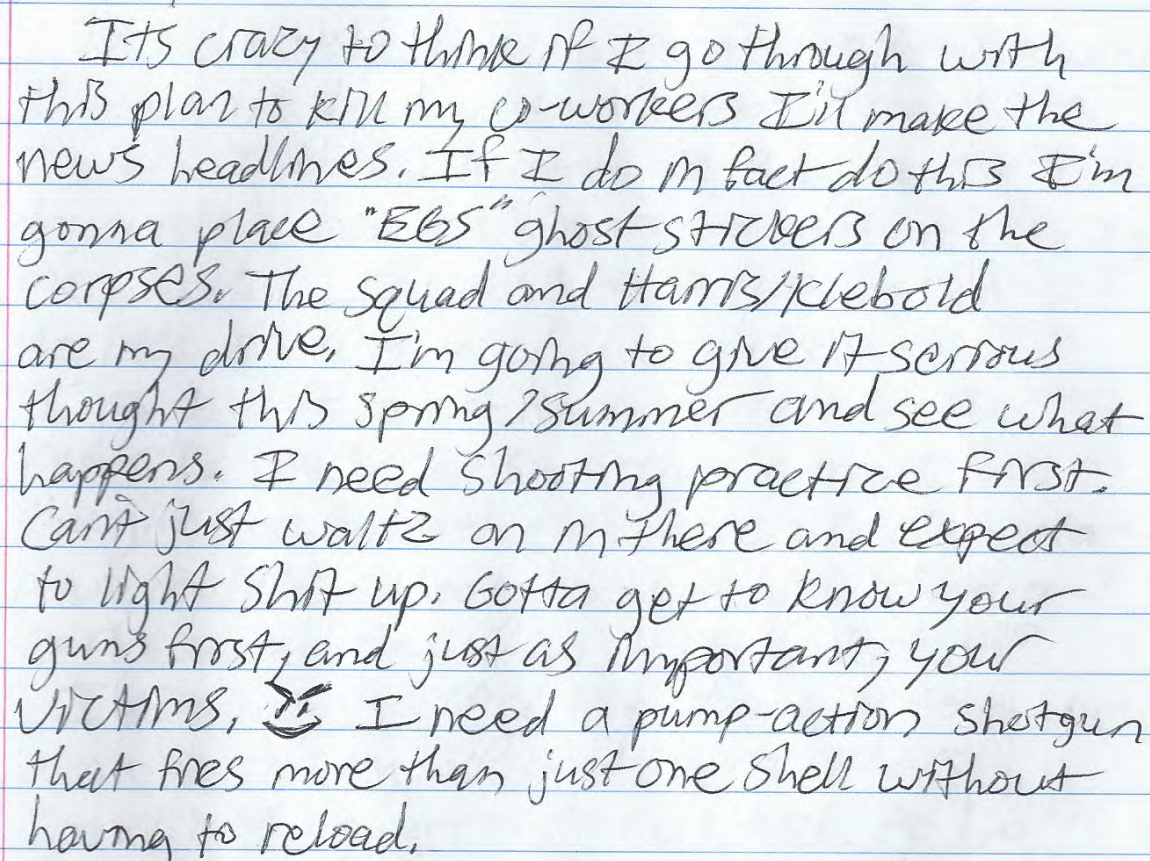 Its crazy to think if I go through with
this plan to kill my co-workers I'll make the
news headlines. If I do in fact do this I'm
gonna place "EGS" ghost stickers on the
corpses. The squad and Harris/Klebold
are my drive. I'm going to give it serrious
thought this spring/summer and see what
happens. I need shooting practice first.
Can't just waltz on in there and expect
to light shit up. Gotta get to know your
guns first, and just as important, your
victims. I need a pump-action shotgun
that fires more than just one shell without
having to reload.